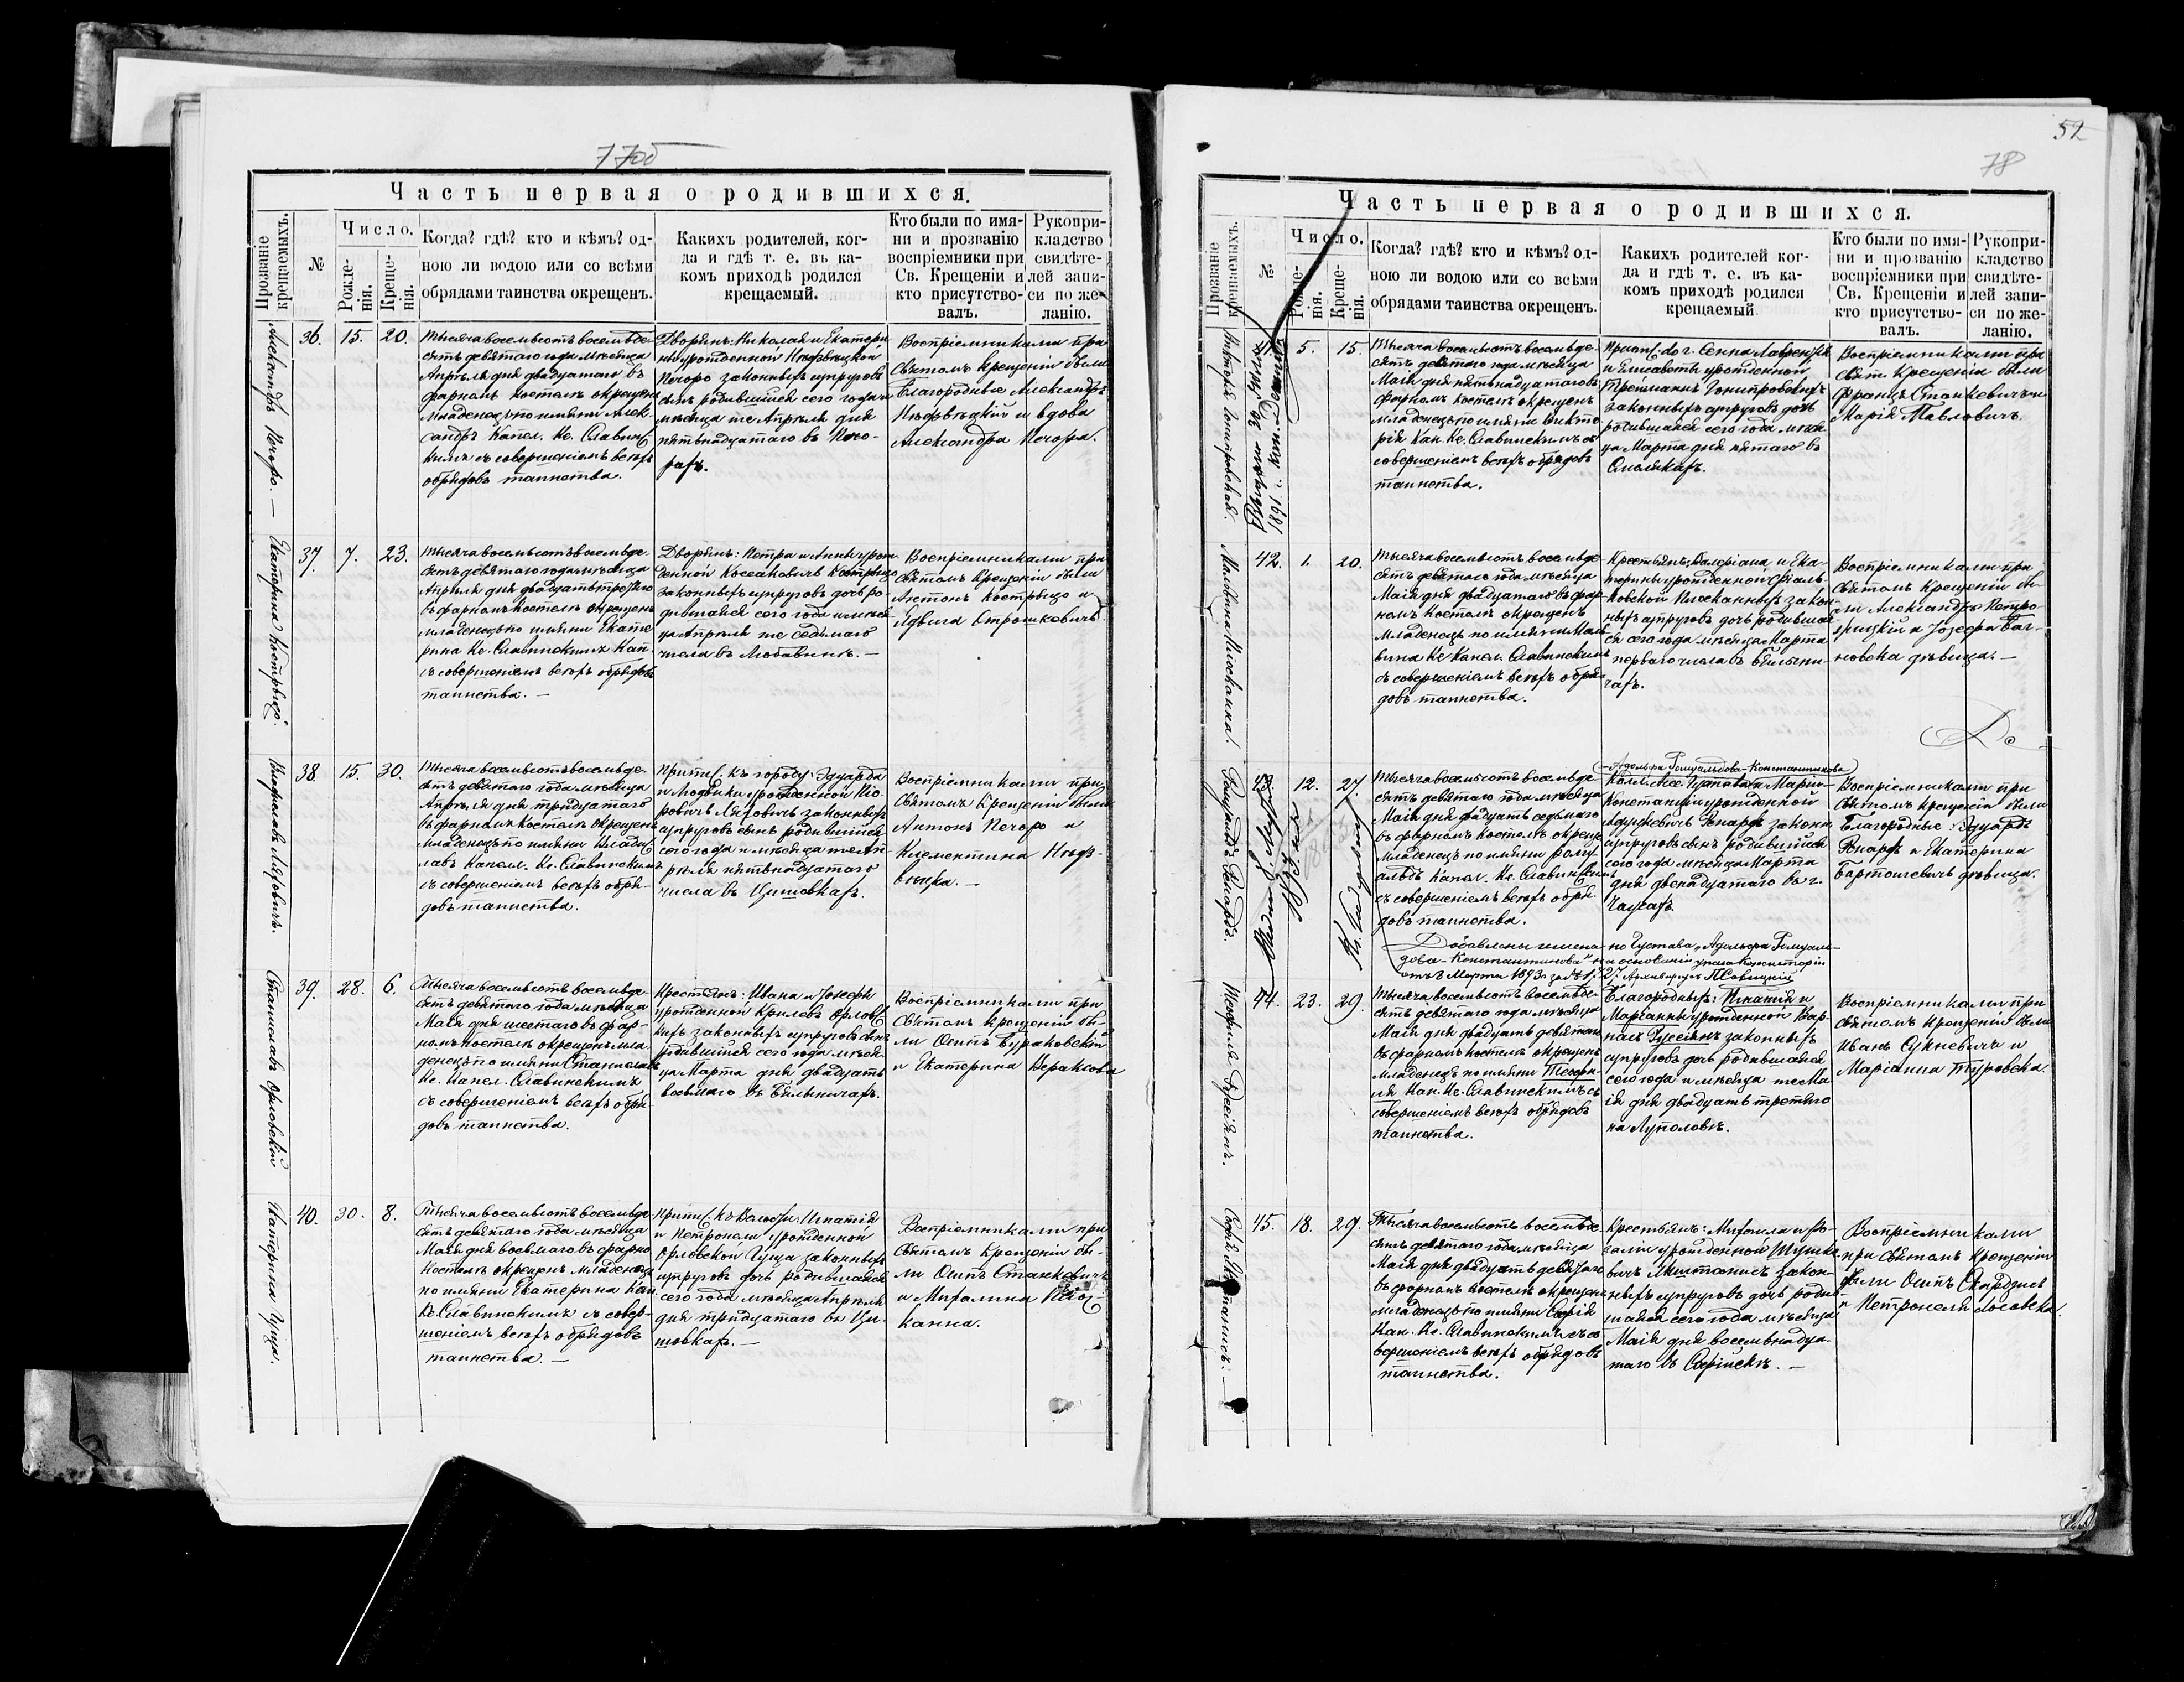 77об
Часть первая о родившихся.
Прозваніе крещаемыхъ.
№
Число.
Рожде-
нія.
Креще-
нія.
Когда? гдѣ? кто и кѣмъ? од-
ною ли водою или со всѣми
обрядами таинства окрещенъ.
Какихъ родителей, ког-
да и гдѣ т. е. въ ка-
комъ приходѣ родился
крещаемый.
Кто были по имя-
ни и прозванію
воспріемники при
Св. Крещеніи и
кто присутство-
валъ.
Рукопри-
кладство
свидѣте-
лей запи-
си по же-
ланію.
Александръ Печоро. —
36.
15.
20.
Тысяча восемьсотъ восемьде-
сятъ девятаго года мѣсяца
Апрѣля дня двадцатаго въ
фарномъ костелѣ окрещенъ
младенецъ по имяни Алек-
сандръ Капел. Кс. Славинс-
кимъ съ совершеніемъ всѣхъ
обрядовъ таинства.
Дворянъ: Николая и Екатери-
ны урожденной
Печоро законныхъ супруговъ
сынъ родившійся сего года и
мѣсяца те Апрѣля дня
пятьнадцатаго въ Печо-
рахъ.
Воспріемниками при
святомъ крещеніи были
Благородные Александръ
и вдова
Александра Печора.
Екатерина
37.
7.
23.
Тысяча восемьсотъ восемьде-
сятъ девятаго года мѣсяца
Апрѣля дня двадцать третяго
въ фарномъ костелѣ окрещенъ
младенецъ по имяни Екате-
рина Кс. Славинскимъ Кап.
съ совершеніемъ всѣхъ обрядовъ
таинства. —
Дворянъ: Петра и Анны урож-
денной Коссаковичъ
законныхъ супруговъ дочь ро-
дившаяся сего года и мѣся-
ца Апрѣля те седьмаго
числа въ Любавинѣ. —
Воспріемниками при
святомъ крещеніи были
Антонъ и
Ядвига
Владиславъ Ляховичъ.
38.
15.
30.
Тысяча восемьсотъ восемьде-
сятъ девятаго года мѣсяца
Апрѣля дня тридцатаго
въ фарномъ костелѣ окрещенъ
младенецъ по имяни Влади-
лавъ Капелл. Кс. Славинскимъ
съ совершеніемъ всѣхъ обря-
довъ таинства.
Припис. къ городу: Эдуарда
и Людвики урожденной Пio-
ровичъ Ляховичъ законныхъ
супруговъ сынъ родившійся
сего года и мѣсяца те Ап-
рѣля пятьнадцатаго
числа въ Цишовкахъ.
Воспріемниками при
святомъ крещеніи были
Антонъ Печоро и
Клементина
Станиславъ Орловскій
39.
28.
6.
Тысяча восемьсотъ восемьде-
сятъ девятаго года мѣсяца
Маія дня шестаго въ фар-
номъ костелѣ окрещенъ мла-
денецъ по имяни Станиславъ
Кс. Капел. Славинскимъ
съ совершеніемъ всѣхъ обря-
довъ таинства.
Крестьянъ: Ивана и Іозефы
урожденной Крилевъ Орловс-
кихъ законныхъ супруговъ сынъ
родившійся сего года мѣся-
ца Марта дня двадцать
восьмаго въ Бѣлыничахъ.
Воспріемниками при
святомъ крещеніи бы-
ли Осипъ Бураковскій
и Екатерина Вераксова
Катерина Цуца.
40.
30.
8.
Тысяча восемьсотъ восемьде-
сятъ девятаго года мѣсяца
Маія дня восьмаго въ фарно
костелѣ окрещенъ младенецъ
по имяни Екатерина Кап.
Кс. Славинскимъ съ совер-
шеніемъ всѣхъ обрядовъ
таинства. —
Припис. къ Волости: Игнатія
и Петронели урожденной
Орловской Цуца законныхъ
супруговъ дочь родившаяся
сего года мѣсяца Апрѣля
дня тридцатаго въ Ци-
шовкахъ. —
Воспріемниками при
святомъ крещеніи бы-
ли Осипъ Станкевичъ
и Михалина
52
78
Часть первая о родившихся.
Прозваніе крещаемыхъ.
№
Число.
Рожде-
нія.
Креще-
нія.
Когда? гдѣ? кто и кѣмъ? од-
ною ли водою или со всѣми
обрядами таинства окрещенъ.
Какихъ родителей ког-
да и гдѣ т. е. въ ка-
комъ приходѣ родился
крещаемый
Кто были по имя-
ни и прозванію
воспріемники при
Св. Крещеніи и
кто присутство-
валъ.
Рукопри-
кладство
свидѣте-
лей запи-
си по же-
ланію.
Викторія
1891 г.
5.
15.
Тысяча восемьсотъ восемьде-
сятъ девятаго года мѣсяца
Маія дня пятьнадцатаго въ
фарномъ костелѣ окрещенъ
младенецъ по имяни Викто-
рія Кап. Кс. Славинскимъ съ
совершеніемъ всѣхъ обрядовъ
таинства.
Лаврентія
и Елисаветы урожденной
законныхъ супруговъ дочь
родившаяся сего года мѣся-
ца Марта дня пятаго въ
Смолякахъ.
Воспріемниками при
свят. крещеніи были
Францъ Станкевичъ и
Марія Павловичъ.
Мальвина
42.
1.
20.
Тысяча восемьсотъ восемьде-
сятъ девятаго года мѣсяца
Маія дня двадцатаго въ фар-
номъ костелѣ окрещенъ
младенецъ по имяни Маль-
вина Кс. Капел. Славинскимъ
съ совершеніемъ всѣхъ обря-
довъ таинства.
Крестьянъ: Валеріана и Ека-
терины урожденной Фіаль-
ковской закон-
ныхъ супруговъ дочь родившая-
ся сего года мѣсяца Марта
перваго числа въ Бѣлыни-
чахъ.
Воспріемниками при
святомъ крещеніи бы-
ли Александръ Петро-
и Іозефа
дѣвица. —
Ромуальдъ Ренардъ.
43.
12.
27.
1893.
Тысяча восемьсотъ восемьде-
сятъ девятаго года мѣсяца
Маія дня двадцать седьмаго
въ фарномъ костелѣ окрещ.
младенецъ по имяни Рому-
альдъ Капел. Кс. Славинскимъ
съ совершеніемъ всѣхъ обря-
довъ таинства.
— Адольфа Ромуальдова-Константинова
Колл. Асс. Густава и Маріи-
Констанціи урожденной
Ренардъ законн.
супруговъ сынъ родившійся
сего года мѣсяца Марта
дня двенадцатаго въ г.
Чаусахъ.
Воспріемниками при
святомъ крещеніи были
Благородные: Эдуардъ
Ренардъ и Екатерина
Бартошевичъ дѣвица.
Добавлены имена по Густавѣ „Адольфа Ромуаль-
дова-Константинова" на основаніи указа Консисторіи
отъ 3 Марта 1893 г. за № 1727.
Теофиля
44.
23.
29.
Тысяча восемьсотъ восемьде-
сятъ девятаго года мѣсяца
Маія дня двадцать девятаго
въ фарномъ костелѣ окрещенъ
младенецъ по имяни Теофи-
ля Кап. Кс. Славинскимъ съ
совершеніемъ всѣхъ обрядовъ
таинства.
Благородныхъ: Игнатія и
Маріанны урожденной
законныхъ
супруговъ дочь родившаяся
сего года и мѣсяца те Ма-
ія дня двадцать третяго
на Луполовѣ.
Воспріемниками при
святомъ крещеніи были
Иванъ и
Маріанна Туровска.
Софія
45.
18.
29.
Тысяча восемьсотъ восемьде-
сятъ девятаго года мѣсяца
Маія дня двадцать девятаго
въ фарномъ костелѣ окрещенъ
младенецъ по имяни Софія
Кап. Кс. Славинскимъ съ со-
вершеніемъ всѣхъ обрядовъ
таинства.
Крестьянъ: Михаила и Ро-
заліи урожденной
закон-
ныхъ супруговъ дочь родив-
шаяся сего года мѣсяца
Маія дня восемьнадца-
таго въ Софійскѣ. —
Воспріемниками
при святомъ крещеніи
были Осипъ
и Петронеля